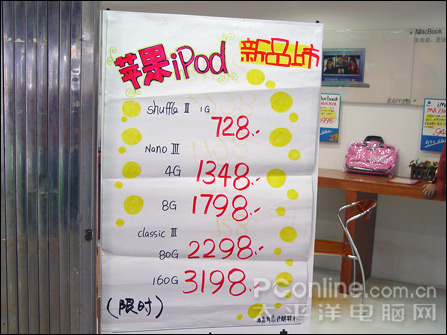 苹果iPod 新品上市
shuffle II 1G
728.-
Nano III
4G 1348.-
8G 1798.-
classic II
80G 2298.-
160G 3198.-
(限时)
MacBook
PConline.com.cn
太平洋电脑网